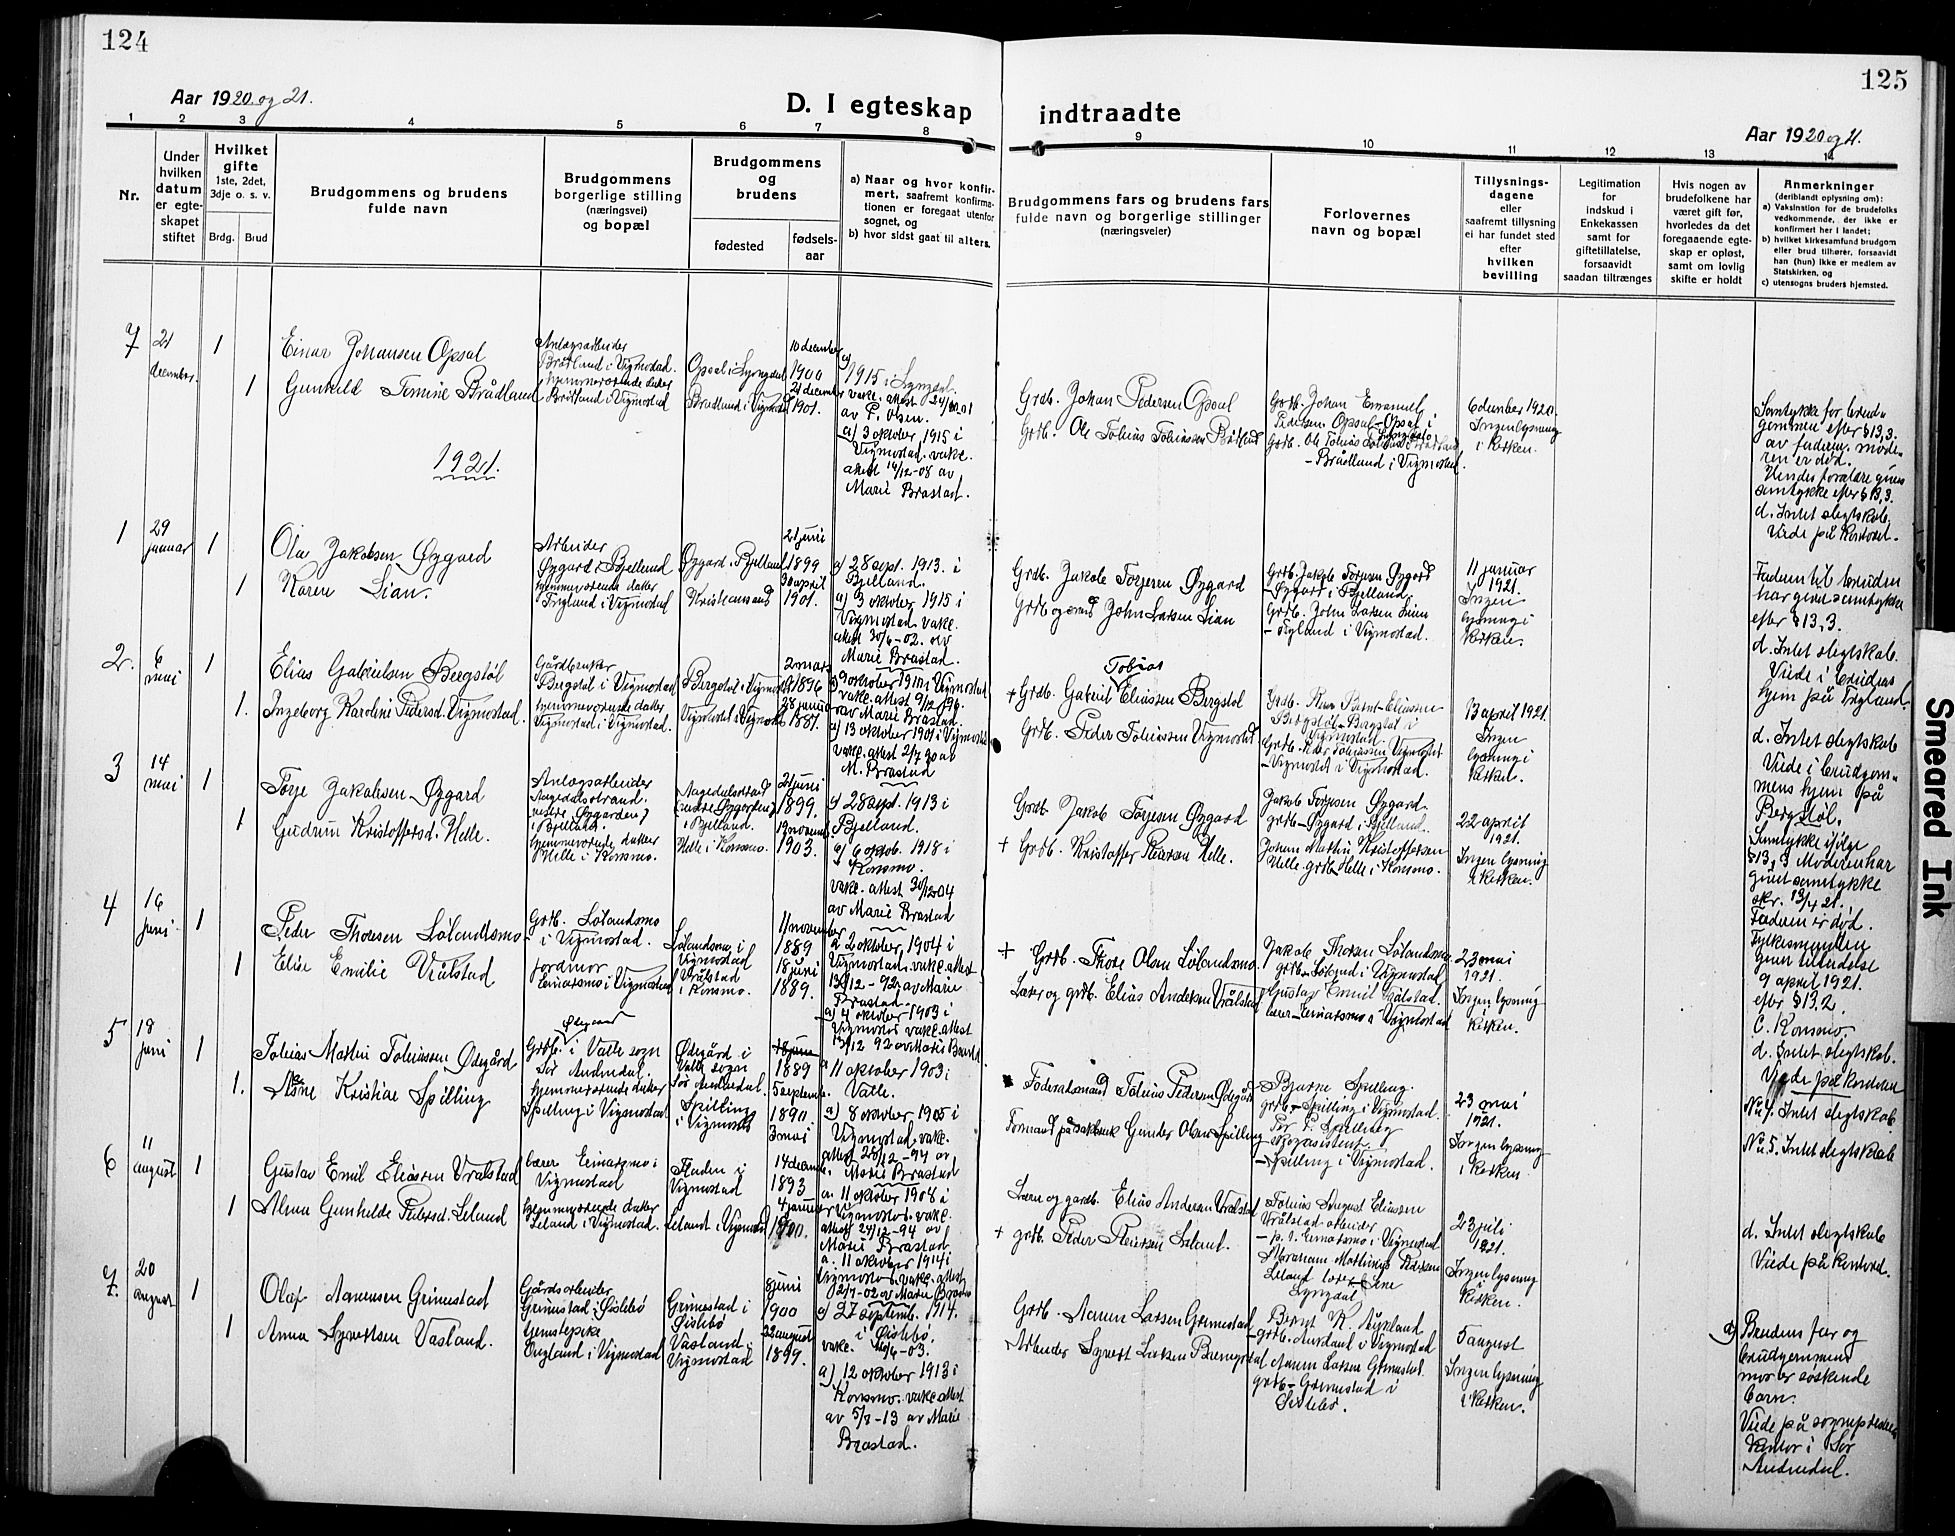 124
Aar 1920 og 21.
D. I egteskap
1 2 3 4 5 6 7 8
Nr.
Under
hvilken
datum
er egte-
skapet
stiftet
Hvilket
gifte
1ste, 2det,
3dje o. s. v.
Brdg. Brud
Brudgommens og brudens
fulde navn
Brudgommens
borgerlige stilling
(næringsvei)
og bopæl
Brudgommens
og
brudens
fødested
fødsels-
aar
a) Naar og hvor konfir-
mert, saafremt konfirma-
tionen er foregaat utenfor
sognet, og
b) hvor sidst gaat til alters.
7
21
december.
1
Einar Johansen Opsal
Anlægsarbeider
Brådland i Vigmostad.
Opsal i Lyngdal
10 december
1900
a)
1915 i Lyngdal.
vakc. attest
av P. Olsen.
1
Gunhild Tomine Brådland
hjemmeværende datter
Brådland i Vigmostad
Brådland i Vigmostad
21 december
1901.
a) 3 oktober 1915 i
Vigmostad. vakc.
attest 14/12-08 av
Marie Brastad.
1921.
1
29
januar
1
Ola Jakobsen Øygard
Arbeider
Øygard i Bjelland
Øygard i Bjelland
21 juni
1899
a) 28 sept. 1913 i
Bjelland.
1
Karen Lian.
hjemmeværende datter
Trygland i Vigmostad
Kristiansand
30 april
1901.
a) 3 oktober 1915 i
Vigmostad vakc.
attest 30/6-02. av
Marie Brastad.
2.
6
mai
1
Elias Gabrielsen Bergstøl
Gårdbruker
Bergstøl i Vigmostad
Bergstøl i Vigmostad
2 mars
1896
vakc. attest 9/12 96.
av Marie Brastad.
1.
Ingeborg Karoline Pedersd. Vigmostad.
hjemmeværende datter
Vigmostad i Vigmostad.
Vigmostad i Vigmostad
28 januar
1887.
a) 13 oktober 1901 i Vigmostad
vakc. attest 2/7 90 av
M. Brastad
3
14
mai
1
Torje Jakobsen Øygard
Anlægsarbeider
Aagedalsstrand.
(nedre Øygarden)
i Bjelland.
Aagedalsstrand
(nedre Øygarden)
i Bjelland.
21 juni
1899.
a) 28 sept. 1913 i
Bjelland.
1
Gudrun Kristoffersd. Helle.
hjemmeværende datter
Helle i Konsmo.
Helle i Konsmo.
13 novemb.
1903.
a) 6 oktob. 1918 i
Konsmo.
vakc. attest 30/12 04
av Marie Brastad
4
16
juni
1
Peder Thoresen Lølandsmo
Grdb. Lølandsmo
- i Vigmostad.
Lølandsmo i
Vigmostad
11 november
1889
a 2 oktober 1904 i
Vigmostad. vakc. attest
13/12-92 av Marie
Brastad.
1
Elise Emilie Vrålstad
Jordmor
Eimarsmo i Vigmostad
Vrålstad
i Konsmo.
18 juni
1889.
a) 4 oktober 1903 i
Vigmostad vakc. attest
13/12 92 av Marie Brastad
5
18
juni
1
Tobias Martin Tobiassen Ødegård
Ødegaard
Grdb. i Valle sogn
Sør Audnedal.
Ødegård i
Valle sogn
Sør Audnedal.
18 juni
1889
a 11 oktober 1903 i
Valle.
1.
Asne Kristine Spilling
hjemmeværende datter
Spilling i Vigmostad
Spilling
i Vigmostad
5 septemb.
1890.
3 mai
a) 8 oktober 1905 i
Vigmostad vakc.
attest 28/12-94 av
Marie Brastad
6
11
august
1
Gustav Emil Eliassen Vrålstad
lærer Eimarsmo i
Vigmostad
Fladen i
Vigmostad
14 decemb.
1893
a. 11 oktober 1908 i
Vigmostad. vakc.
attest 24/12-94 av
Marie Brastad
1
Alma Gunhilde Pedersd. Leland
hjemmeværende datter
Leland i Vigmostad.
Leland i Vigmostad
4 januar
1900.
a. 11 oktober 1914 i
Vigmostad. vakc. attest
2/7-02 av Marie Brastad
7.
20
august
1
Olaf Aanensen Grimestad
Gårdsarbeider
Grimestad i Øislebø
Grimestad i
Øislebø
8 juni
1900
a) 27 septemb. 1914.
i Øislebø.
vakc. 16/6-03.
1
Anna Syvertsen Vasland.
tjenestepike
Trygland i Vigmostad
Vasland i
Vigmostad
22 august
1899.
a) 12 oktober 1913 i
Konsmo. vakc. attest
av 5/3-13 av Marie
Brastad.
125
indtraadte
Aar 1920 og 21.
9 10 11 12 13 14
Brudgommens fars og brudens fars
fulde navn og borgerlige stillinger
(næringsveier)
Forlovernes
navn og bopæl
Tillysnings-
dagene
eller
saafremt tillysning
ei har fundet sted
efter
hvilken
bevilling
Legitimation
for
indskud i
Enkekassen
samt for
giftetillatelse,
forsaavidt
saadan tiltrænges
Hvis nogen av
brudefolkene har
været gift før,
hvorledes da det
foregaaende egte-
skap er opløst,
samt om lovlig
skifte er holdt
Anmerkninger
(deriblandt oplysning om):
a) Vaksination for de brudefolks
vedkommende, der ikke er
konfirmert her i landet;
b) hvilket kirkesamfund brudgom
eller brud tilhører, forsaavidt
han (hun) ikke er medlem av
Statskirken, og
c) utensogns bruders hjemsted.
Grdb. Johan Pedersen Opsal
Grdb. Ole Tobias Tobiassen Brådland
Grdb. Johan Emanuel
Pedersen Opsal-Opsal i
Lyngdal
Grdb. Ole Tobias Tobiassen Brådland
- Brådland i Vigmostad.
6 december 1920.
Ingen lysning
i kirken.
Samtykke for brud-
gommen efter §13,3.
av faderen. mode-
ren er død.
Hendes forældre given
samtykke efter §13,3.
d. Intet slegtskab.
Viede på kontoret.
Grdb. Jakob Torjesen Øygard
Grdb og smed John Larsen Lian
Grdb. Jakob Torjesen Øygard
- Øygard i Bjelland
Grdb. John Larsen Lian
- Trygland i Vigmostad.
11 januar
1921.
Ingen
lysning i
kirken.
Faderen til bruden
har givet samtykke
efter §13,3.
d. Intet slegtskab.
Viede i brudens
hjem på Trygland.
Tobias
+ Grdb. Gabriel Eliassen Bergstøl
Grdb. Peder Tobiassen Vigmostad
Bergstøl-Bergstøl i
Vigmostad.
Grdb. Peder Tobiassen Vigmostad
- Vigmostad i Vigmostad.
13 april 1921.
Ingen
lysning i
kirken.
d. Intet slegtskab
Viede i brudgom-
mens hjem på
Bergstøl.
Grdb. Jakob Torjesen Øygard
+ Grdb. Kristoffer Petersen Helle.
Jakob Torjesen Øygard
grdb-Øygard i Bjelland.
Johan Martin Kristoffersen
Helle. grdb Helle i Konsmo.
22 april
1921.
Ingen lysning
i kirken.
Samtykke ifølge
§13,3 Moderen har
givet samtykke
skr. 13/4 21.
Faderen er død.
Fylkesmanden
given tilladelse
9 april 1921.
efter §13.2.
C. Konsmo
d. Intet slegtskab.
Viede på kontoret
+ Grdb. Thore Olsen Lølandsmo
Lærer og grdb. Elias Andersen Vrålstad
Jakob Thoresen Lølandsmo
grdb. Løland i Vigmostad
Gustav Emil Vrålstad.
lærer-Eimarsmo i Vigmostad
23 mai
1921.
Ingen lysning i
kirken.
Nr. 4. Intet slegtskab.
Føderaadsmand Tobias Pedersen Ødegård
Formand på sakbruk Gunder Olsen Spilling
Bjarne Spilling.
grdb.-Spilling i Vigmostad.
Per T. Spilling
- Spilling i Vigmostad.
23 mai
1921.
Ingen lysning
i kirken
Nr. 5. Intet slegtskab
Lærer og gardb. Elias Andersen Vrålstad
+ grdb. Peder Pedersen Leland.
Tobias August Eliassen
Vrålstad-arbeider
- p. t. Eimarsmo i Vigmostad
Abraham Mathias Pedersen
Leland
Lyngdal
23 juli
1921.
Ingen lysning
i
kirken.
d. Intet slegtskab
Viede på kontoret.
Grdb. Aanen Larsen Grimestad
Arbeider Syvert Larsen
Bernt K. Auseland
- grdb. Auseland i Vigmostad
Aanen Larsen Grimestad
grdb-Grimestad i
Øislebø.
5 august
Ingen lysning
i kirken.
d) Brudens far og
brudgommens
mor er søskende
barn.
Viede på sogneprestens
kontor i Sør
Audnedal.
Smeared Ink